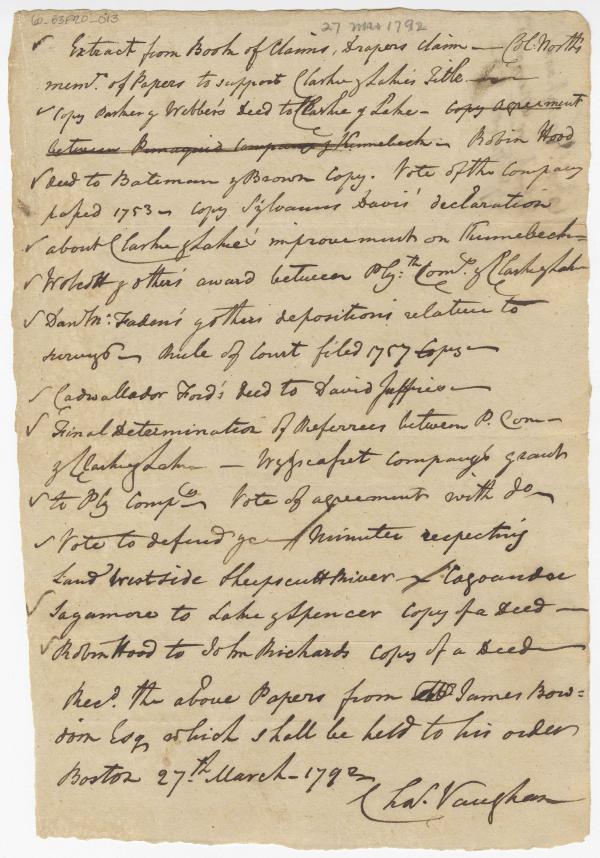 60-53FPD-013
27 MAR 1792
✓ Extract from Book of Claims, Drapers claim — Col. North's
memo. of Papers to support Clarke & Lake's Title —
✓ Copy Parker & Webber's Deed to Clarke & Lake — Copy agreement
between Pemaquid Company & Kennebeck — Robin Hood
✓ deed to Bateman & Brown Copy. Vote of the Company
passed 1753 — Copy Sylvanus Davis' declaration
✓ about Clarke & Lake's improvements on Kennebeck —
✓ Wolcott & others' award between Ply:th Comy. & Clarke & Lake
✓ Danl. Mc: Faden's & others depositions relative to
surveys — Rule of Court filed 1757 Copy —
✓ Cadwallador Ford's Deed to David Jeffries —
✓ Final Determination of Referrees between P. Com—
& Clarke & Lake — Wiscasset company's grant
✓ to Ply Compy — Vote of agreement with do —
✓ Vote to defend &c — Minutes respecting
Land West side Sheepscutt River —
✓ Sagamore to Lake & Spencer Copy of a Deed —
✓ Robin Hood to John Richards Copy of a Deed —
Recd. the above Papers from James Bow=
doin Esq which shall be held to his order
Boston 27th. March — 1792
Chas. Vaughan